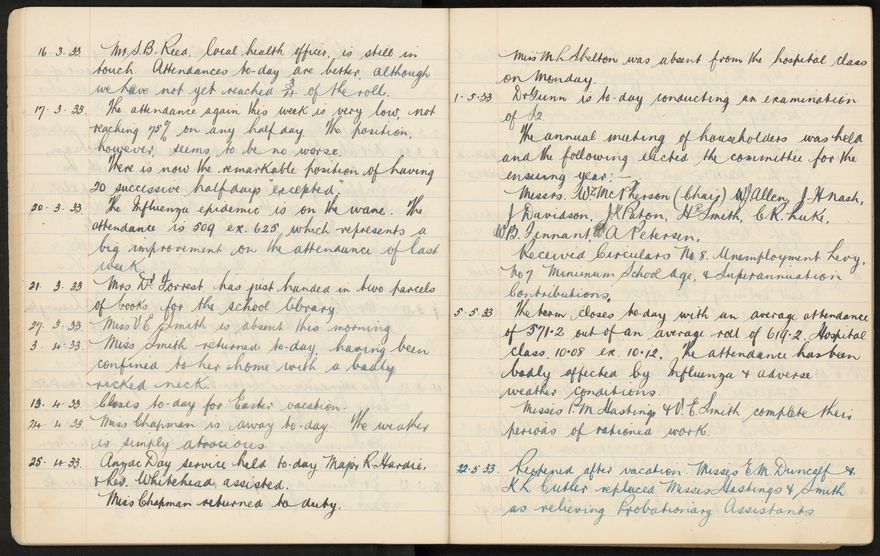 16. 3. 33. Mr. S. B. Reed, local health officer, is still in
touch. Attendances to-day are better, although
we have not yet reached 3/4 of the roll.
17. 3. 33. The attendance again this week is very low, not
reaching 75% on any half day. The position,
however, seems to be no worse.
There is now the remarkable position of having
20 successive half days "excepted".
20. 3. 33. The Influenza epidemic is on the wane. The
attendance is 509 ex. 625, which represents a
big improvement on the attendance of last
week.
21. 3. 33 Mrs. Dr Forrest has just handed in two parcels
of books for the school library.
27. 3. 33 Miss V. E. Smith is absent this morning
3. 4. 33 Miss Smith returned to-day, having been
confined to her home with a badly
ricked neck.
13. 4. 33. Closes to-day for Easter vacation.
24. 4. 33 Miss Chapman is away to-day. The weather
is simply atrocious.
25. 4. 33. Anzac Day service held to-day. Major R. Hardie,
& Rev. Whitehead assisted.
Miss Chapman returned to duty.
Miss M. L. Shelton was absent from the hospital class
on Monday.
1. 5. 33 Dr Gunn is to-day conducting an examination
of S2
The annual meeting of householders was held
and the following elected the committee for the
ensuing year:—
Messrs. Wm McPherson (Chair) W J Allen, J. H Nash,
J Davidson, J. K Paton, H. Smith, C. R. Luke,
W B. Tennant, A Petersen.
Received Circulars No. 8. Unemployment Levy,
No 7 Minimum School Age, & Superannuation
Contributions.
5. 5. 33 The term closes to-day with an average attendance
of 571.2 out of an average roll of 619.2. Hospital
class 10.08 ex. 10.12. The attendance has been
badly affected by Influenza & adverse
weather conditions.
Misses P. M. Hastings & V. E. Smith complete their
periods of rationed work.
22. 5. 33. Reopened after vacation. Misses E. M. Duncalf &
K L Cutler replaced Misses Hastings & Smith
as relieving Probationary Assistants